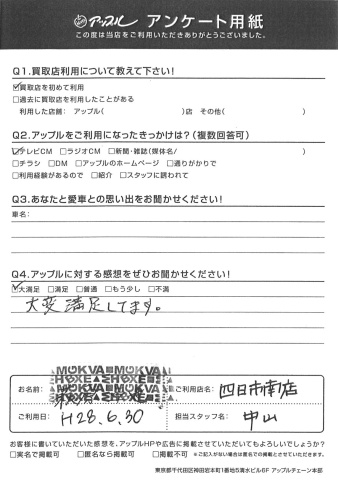 アップル アンケート用紙
この度は当店をご利用いただきありがとうございました。
Q1.買取店利用について教えて下さい!
☑買取店を初めて利用
□過去に買取店を利用したことがある
利用した店舗: アップル( )店 その他( )
Q2.アップルをご利用になったきっかけは?(複数回答可)
☑テレビCM □ラジオCM □新聞・雑誌(媒体名/ )
□チラシ □DM □アップルのホームページ □通りがかりで
□利用経験があるので □紹介 □スタッフに誘われて
Q3.あなたと愛車との思い出をお聞かせください!
車名:
Q4.アップルに対する感想をぜひお聞かせください!
☑大満足 □満足 □普通 □もう少し □不満
大変満足してます。
お名前:
ご利用店名: 四日市南店
ご利用日: H28.6.30
担当スタッフ名: 中山
お客様に書いていただいた感想を、アップルHPや広告に掲載させていただいてもよろしいでしょうか?
□実名で掲載可 □匿名なら掲載可 □掲載不可 ※ご記入がない場合は匿名での掲載とさせていただきます。
東京都千代田区神田岩本町1番地5清水ビル6F アップルチェーン本部